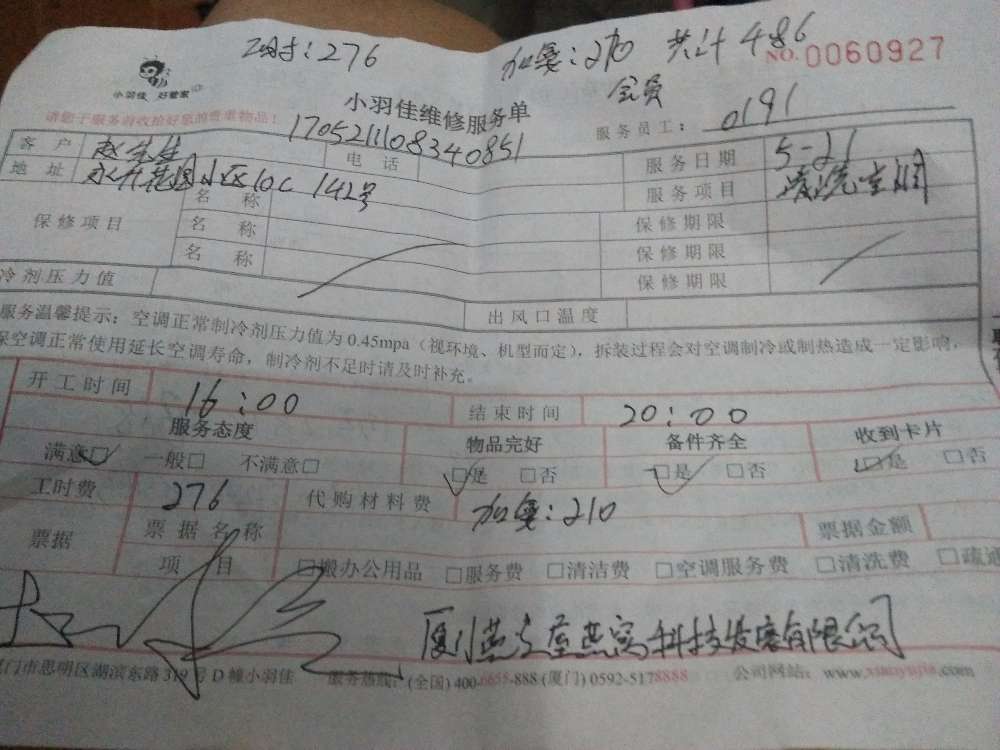 工时:276 加氟:210 共计486
NO.0060927
小羽佳 好管家
会员
小羽佳维修服务单
请您于服务前收拾好您的贵重物品!
服务员工: 0191
客户 赵先生 电话 1705211108340851 服务日期 5-21
地址 永升花园小区10C 142号 服务项目 清洗空调
保修项目 名称 保修期限
名称 保修期限
名称 保修期限
冷剂压力值 出风口温度
服务温馨提示:空调正常制冷剂压力值为0.45mpa(视环境、机型而定),拆装过程会对空调制冷或制热造成一定影响,
保空调正常使用延长空调寿命,制冷剂不足时请及时补充。
开工时间 16:00 结束时间 20:00
服务态度 物品完好 备件齐全 收到卡片
满意□ 一般□ 不满意□ □是 □否 □是 □否 □是 □否
工时费 276 代购材料费 加氟:210
票据 票据名称 票据金额
项目 □搬办公用品 □服务费 □清洁费 □空调服务费 □清洗费 □疏通
厦门燕之屋燕窝科技发展有限公司
厦门市思明区湖滨东路319号D幢小羽佳 服务热线:(全国)400-6655-888(厦门)0592-5178888 公司网站:www.xiaoyujia.com